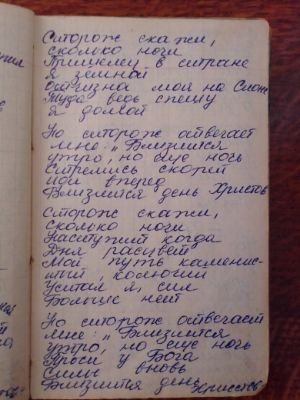 Сторож скажи,
сколько ночи
Пришелец в стране
я земной
Отчизна моя на Сионе
Туда ведь спешу
я домой
Но сторож отвечает
мне: „Близится
утро, но еще ночь
Стремись скорей
иди вперед
Близится день Христов
Сторож скажи,
сколько ночи
Наступит когда
Дня расцвет
Мой путь каменис-
тый,
Устал я, сил
больше нет
Но сторож отвечает
мне: „Близится
утро, но еще ночь
Проси у Бога
Силы вновь
Близится день Христов